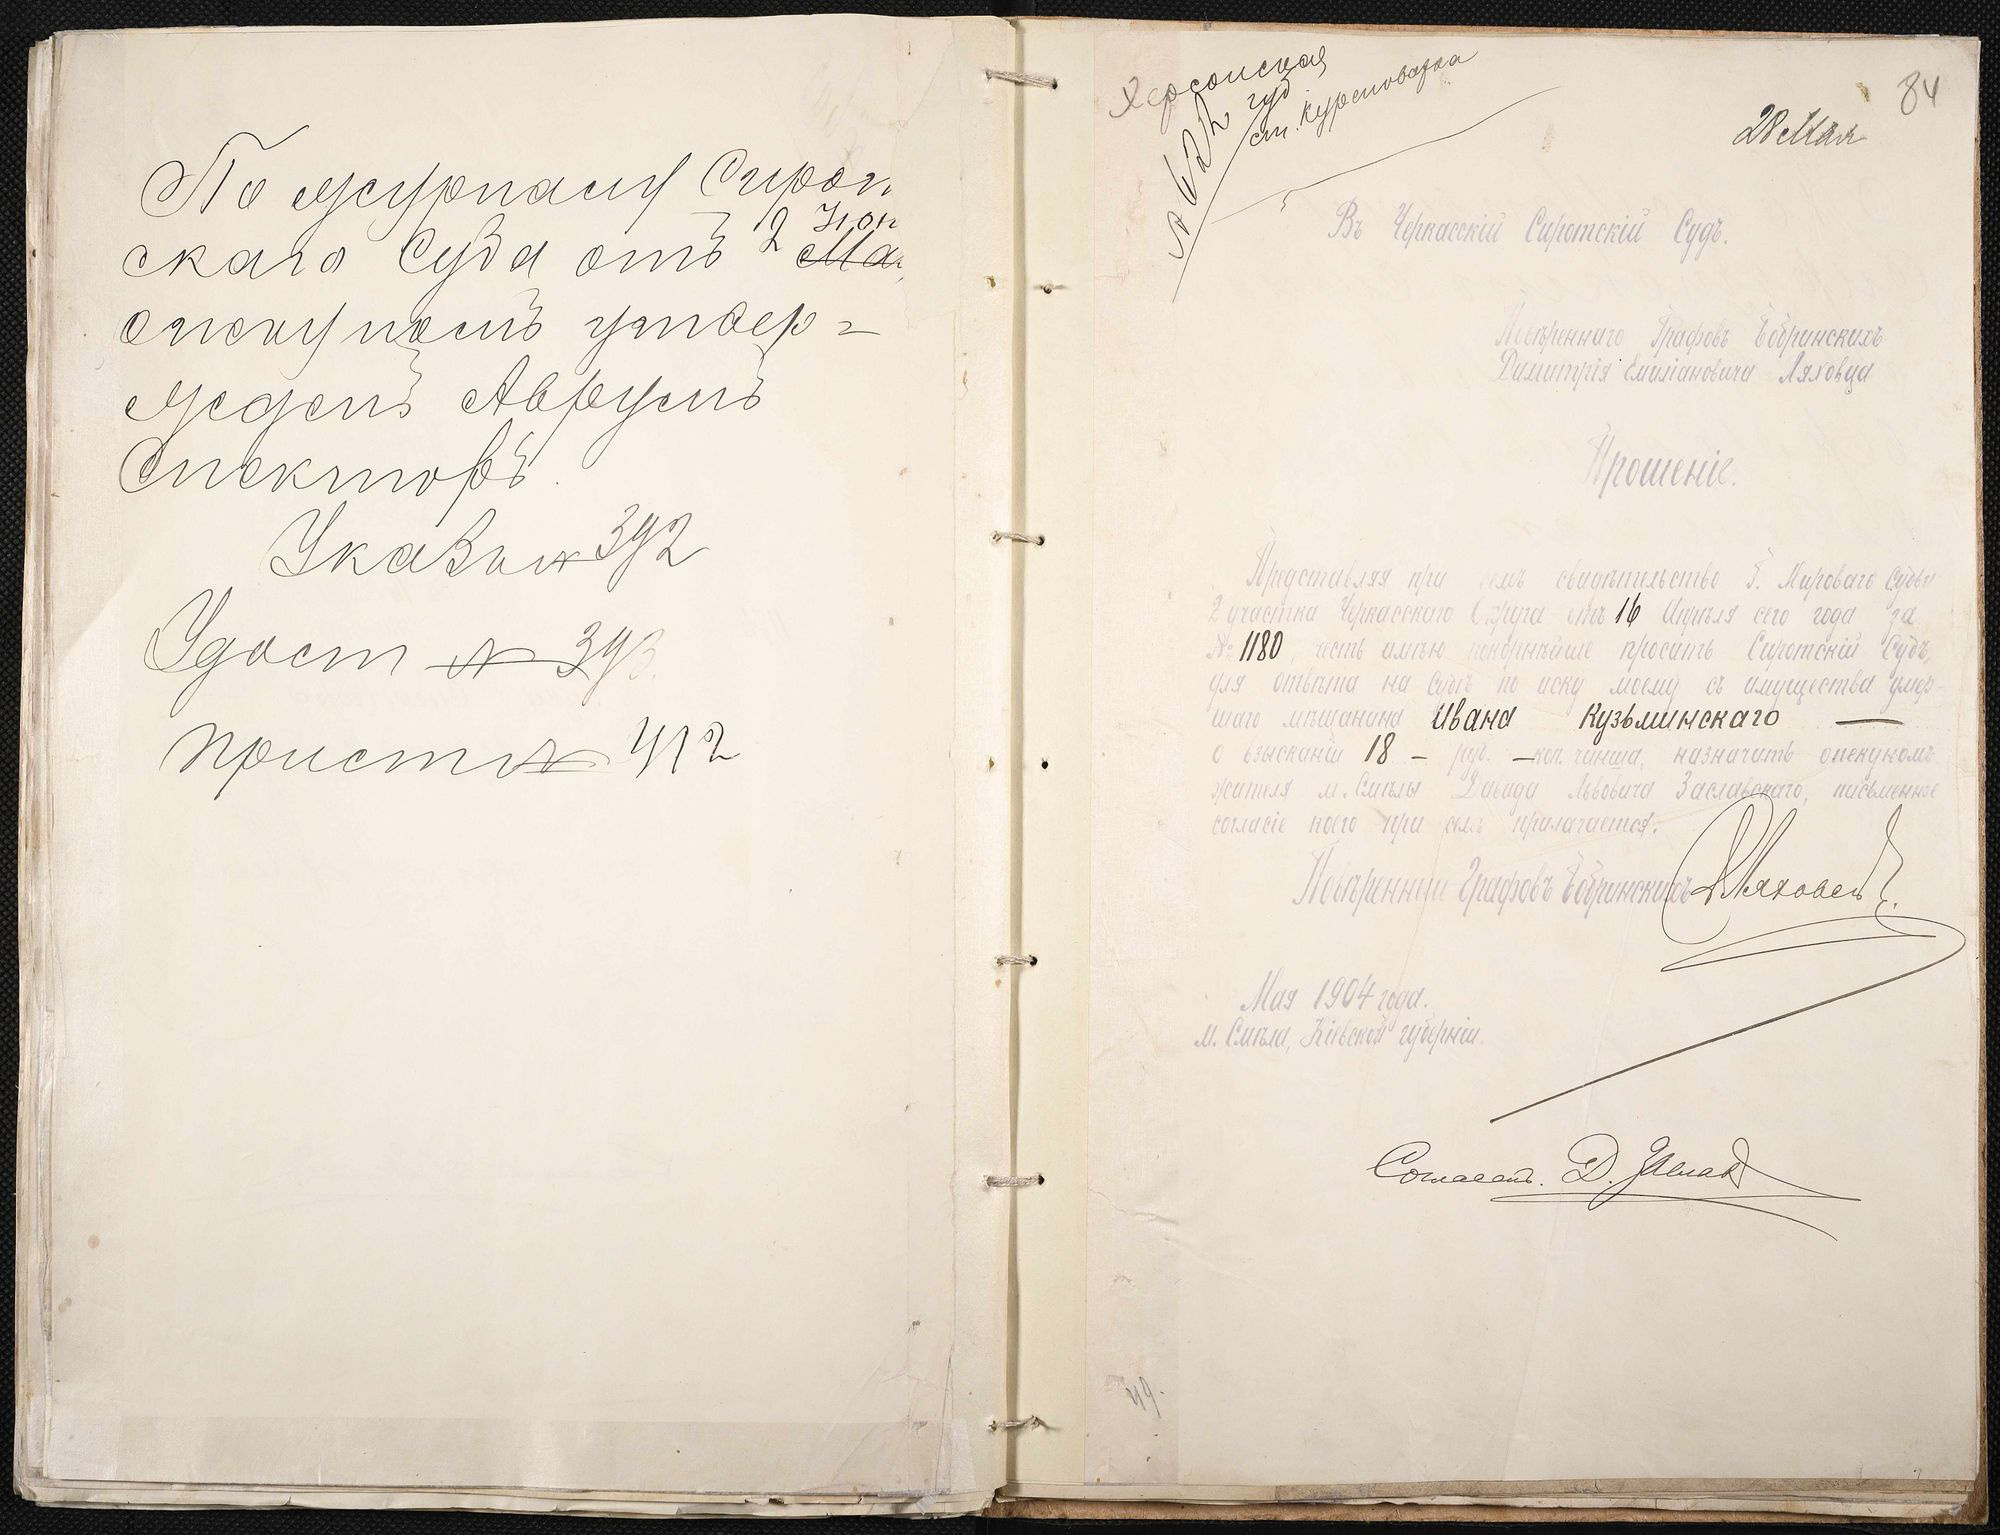 По журналу Сирот
скаго Суда отъ 2 Юн
Ма
опекуномъ утвер-
жденъ Аврумъ
Спекторъ.
Указъ № 392
Удост № 393.
Прист № 412
Херсонская
губ.
ст.
№ 622
84
28 Мая
Въ Черкасскій Сиротскій Судъ.
Повѣреннаго Графовъ Бобринскихъ
Димитрія Емиліановича Ляховца
Прошеніе.
Представляя при семъ свидѣтельство Г. Мироваго Судьи
2 участка Черкасскаго Округа отъ 16 Апрѣля сего года за
№ 1180, честь имѣю покорнѣйше просить Сиротскій Судъ,
для отвѣта на судѣ по иску моему съ имущества умер-
шаго мѣщанина Ивана Кузьминскаго —
о взысканіи 18 – руб. – коп. чинша, назначить опекуномъ
жителя м. Смѣлы Давида Львовича Заславскаго, письменное
согласіе коего при семъ прилагается.
Повѣренный Графовъ Бобринскихъ Д Ляховецъ
Мая 1904 года.
м. Смѣла, Кіевской губерніи.
Согласенъ. Д. Заслав
49.